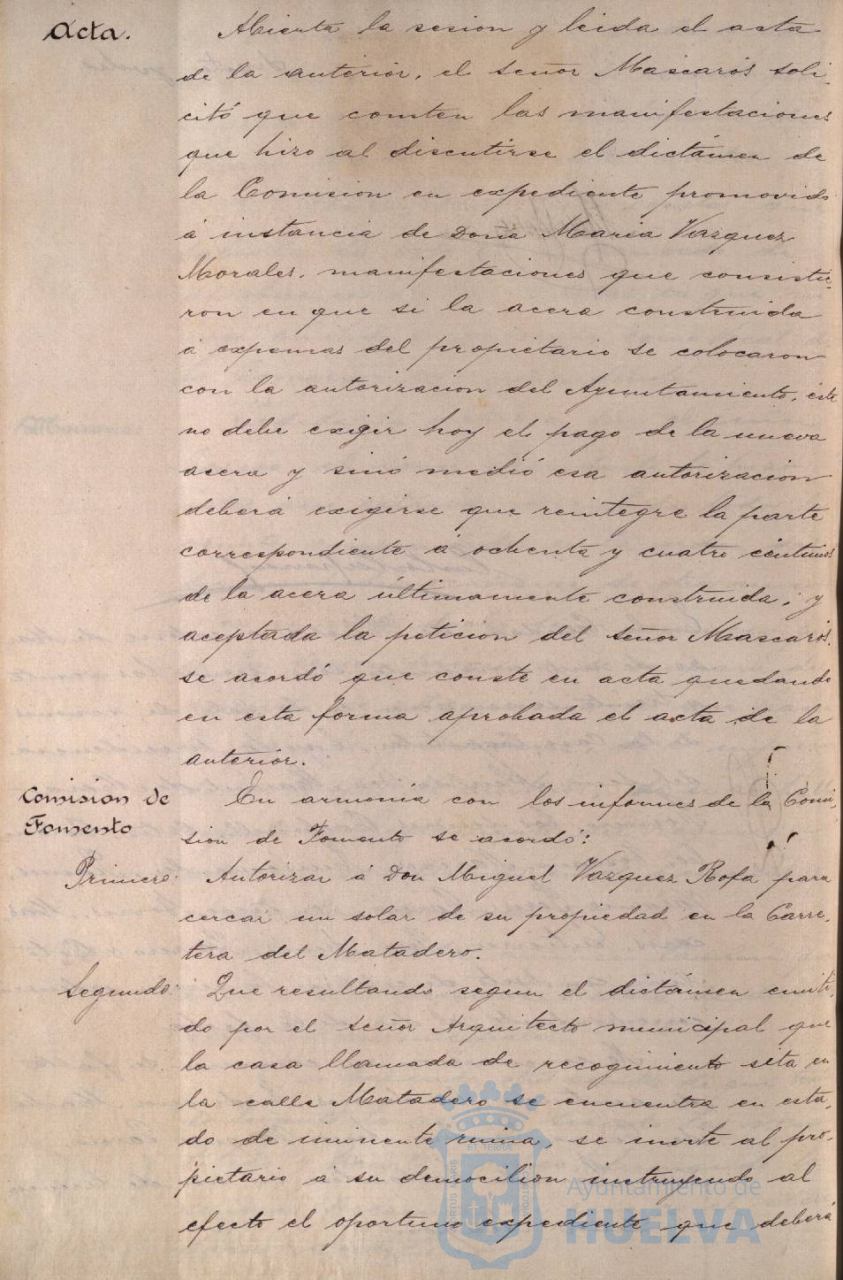 Acta. Abierta la sesion y leida el acta
de la anterior, el Señor Mascarós soli-
citó que consten las manifestaciones
que hizo al discutirse el dictámen de
la Comision en expediente promovido
á instancia de Doña Maria Vazquez
Morales, manifestaciones que consistie-
ron en que si la acera construida
á expensas del propietario se colocaron
con la autorizacion del Ayuntamiento, éste
no debe exigir hoy el pago de la nueva
acera y sinó medió esa autorizacion
deberá exigirse que reintegre la parte
correspondiente á ochenta y cuatro céntimos
de la acera últimamente construida; y
aceptada la peticion del Señor Mascarós,
se acordó que conste en acta quedando
en esta forma aprobada el acta de la
anterior.
Comision de Fomento
En armonia con los informes de la Comi-
sion de Fomento se acordó:
Primero. Autorizar á Don Miguel Vazquez Rofa para
cercar un solar de su propiedad en la Carre-
tera del Matadero.
Segundo. Que resultando segun el dictámen emiti-
do por el Señor Arquitecto municipal que
la casa llamada de recogimiento sita en
la calle Matadero se encuentra en esta-
do de iminente ruina, se invite al pro-
pietario á su demolicion instruyendo al
efecto el oportuno expediente que deberá
Ayuntamiento de
HUELVA